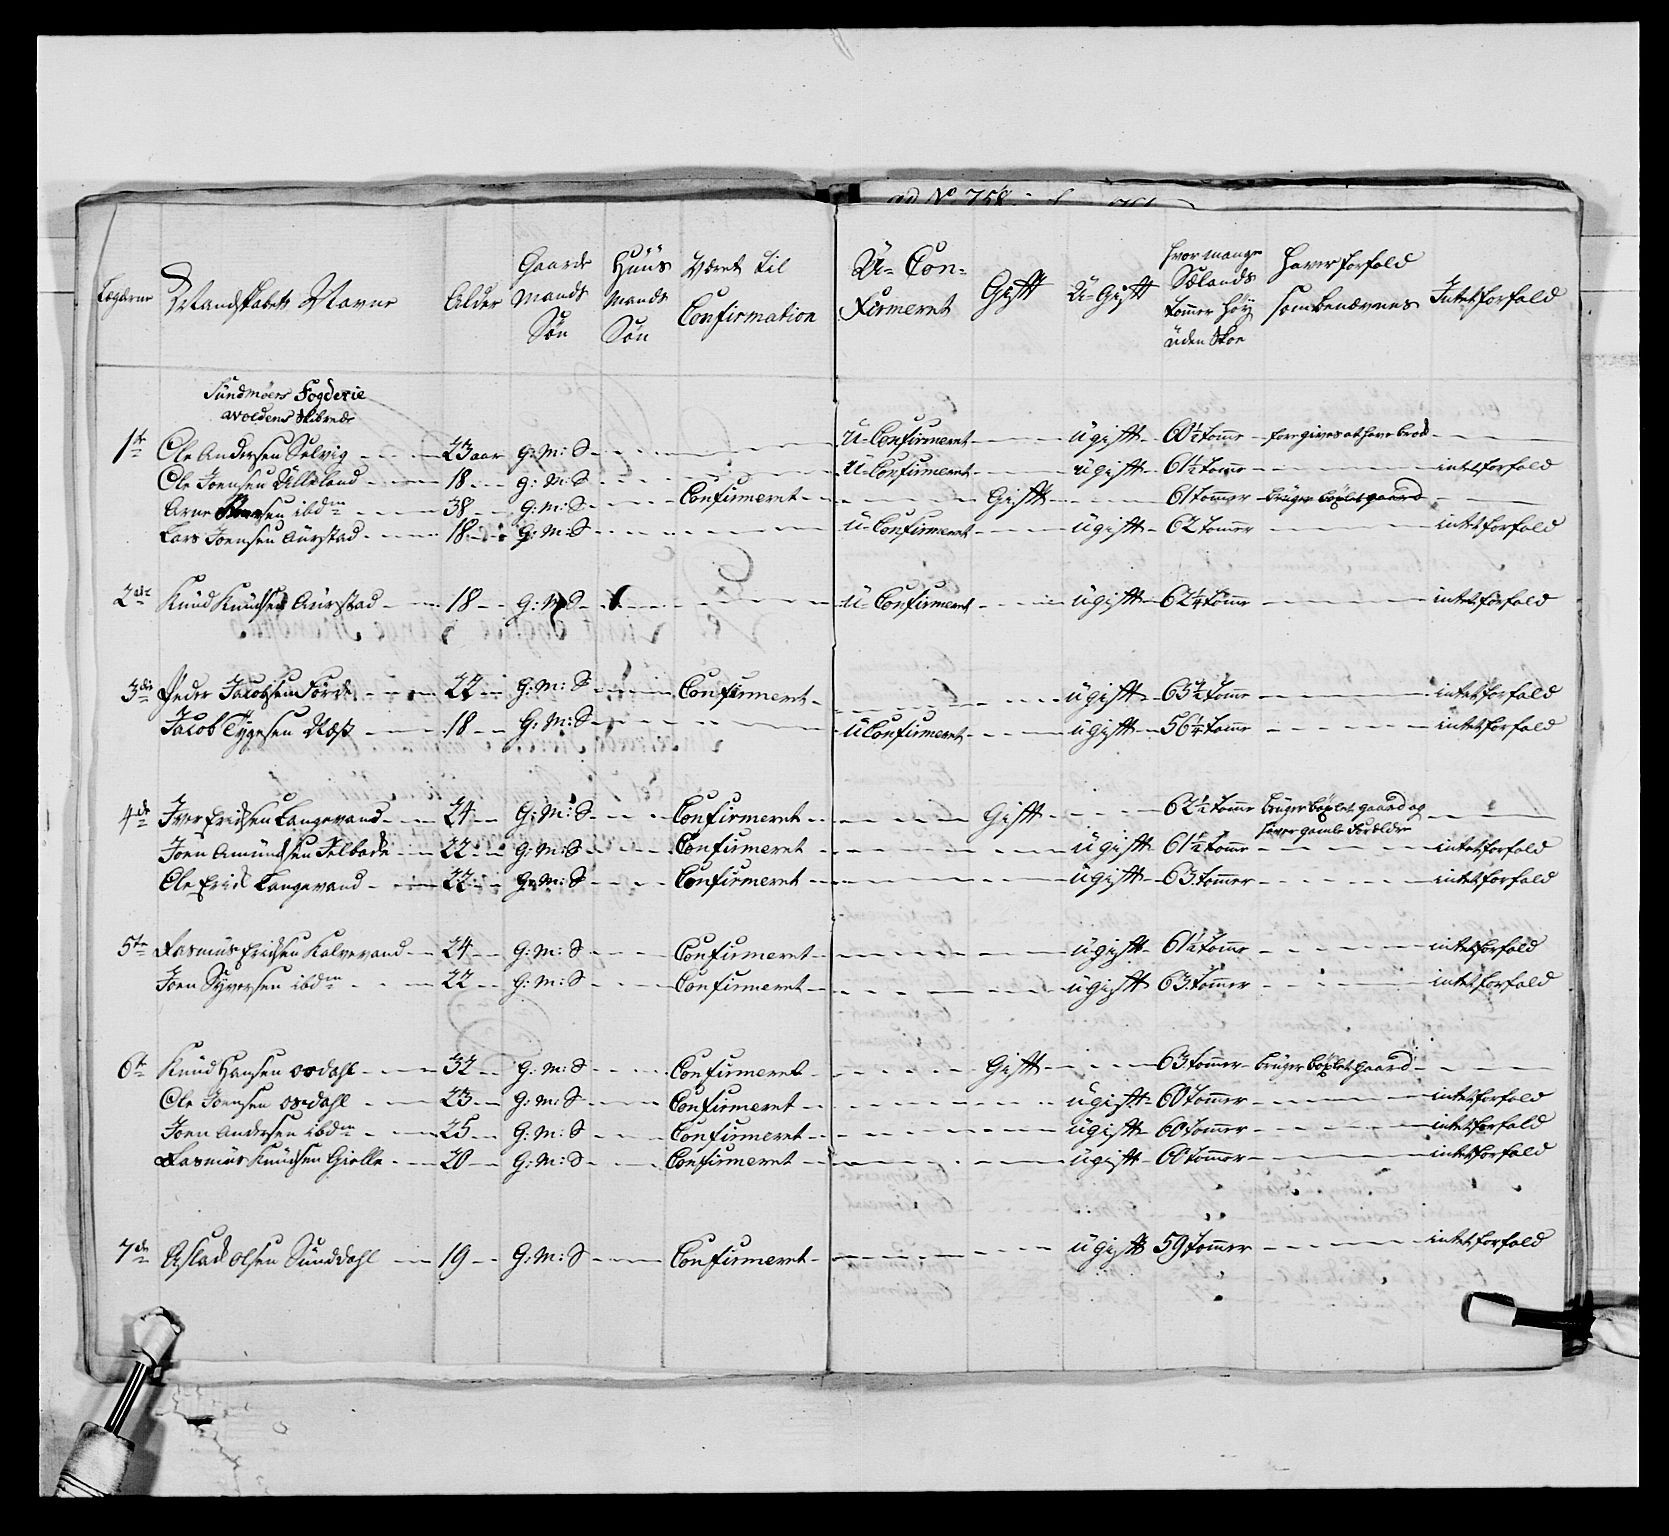 ad No 758
Lægderne | Mandskabets Navne | Alder | Gaards Mands Søn | Huus Mands Søn | Været til Confirmation | U-Con-firmeret | Gift | U-Gift | hvor mange Sælands tommer høy uden Skoe | haver forfald som benævnes | Intet forfald
Sundmøers Fogderie
Woldens Skibrede
1te Ole Andersen Velvig 23 aar G:M:S U-Confirmeret ugift 60½ tomme foregives at have brok
Ole Joensen Ulleland 18 G:M:S U-Confirmeret ugift 61½ tomme intet forfald
Arne ibdm 38 G:M:S Confirmeret Gift 61 tommer bruger böxlet gaard
Lars Joensen Aurstad 18 G:M:S U-Confirmeret ugift 62 tommer intet forfald
2den Knud Knudsen Aurstad 18 G:M:S U-Confirmeret ugift 62¼ tomme intet forfald
3die Peder Jacobsen Förde 22 G:M:S Confirmeret ugift 65½ tomme intet forfald
Jacob Tygesen Næss 18 G:M:S U Confirmeret ugift 56¼ tomme intet forfald
4de Iver Ericksen Langevand 24 G:M:S Confirmeret Gift 62½ tomme bruger böxlet gaard og
haver gamle Forældre
Joen Amundsen 22 G:M:S Confirmeret ugift 61½ tomme intet forfald
Ole Erics Langevand 22 G:M:S Confirmeret ugift 63 tommer intet forfald
5te Rasmus Ericksen Kalvevand 24 G:M:S Confirmeret ugift 61¼ tomme intet forfald
Joen Syversen ibdm 22 G:M:S Confirmeret ugift 63 tommer intet forfald
6te Knud Hansen Osdahl 32 G:M:S Confirmeret Gift 63 tommer bruger böxlet gaard
Ole Joensen Osdahl 23 G:M:S Confirmeret ugift 60 tommer intet forfald
Joen Andersen ibdm 25 G:M:S Confirmeret ugift 60 tommer intet forfald
Rasmus Knudsen Giolle 20 G:M:S Confirmeret ugift 60 tommer intet forfald
7de Aslak Olsen Sunddahl 19 G:M:S Confirmeret ugift 59 tommer intet forfald